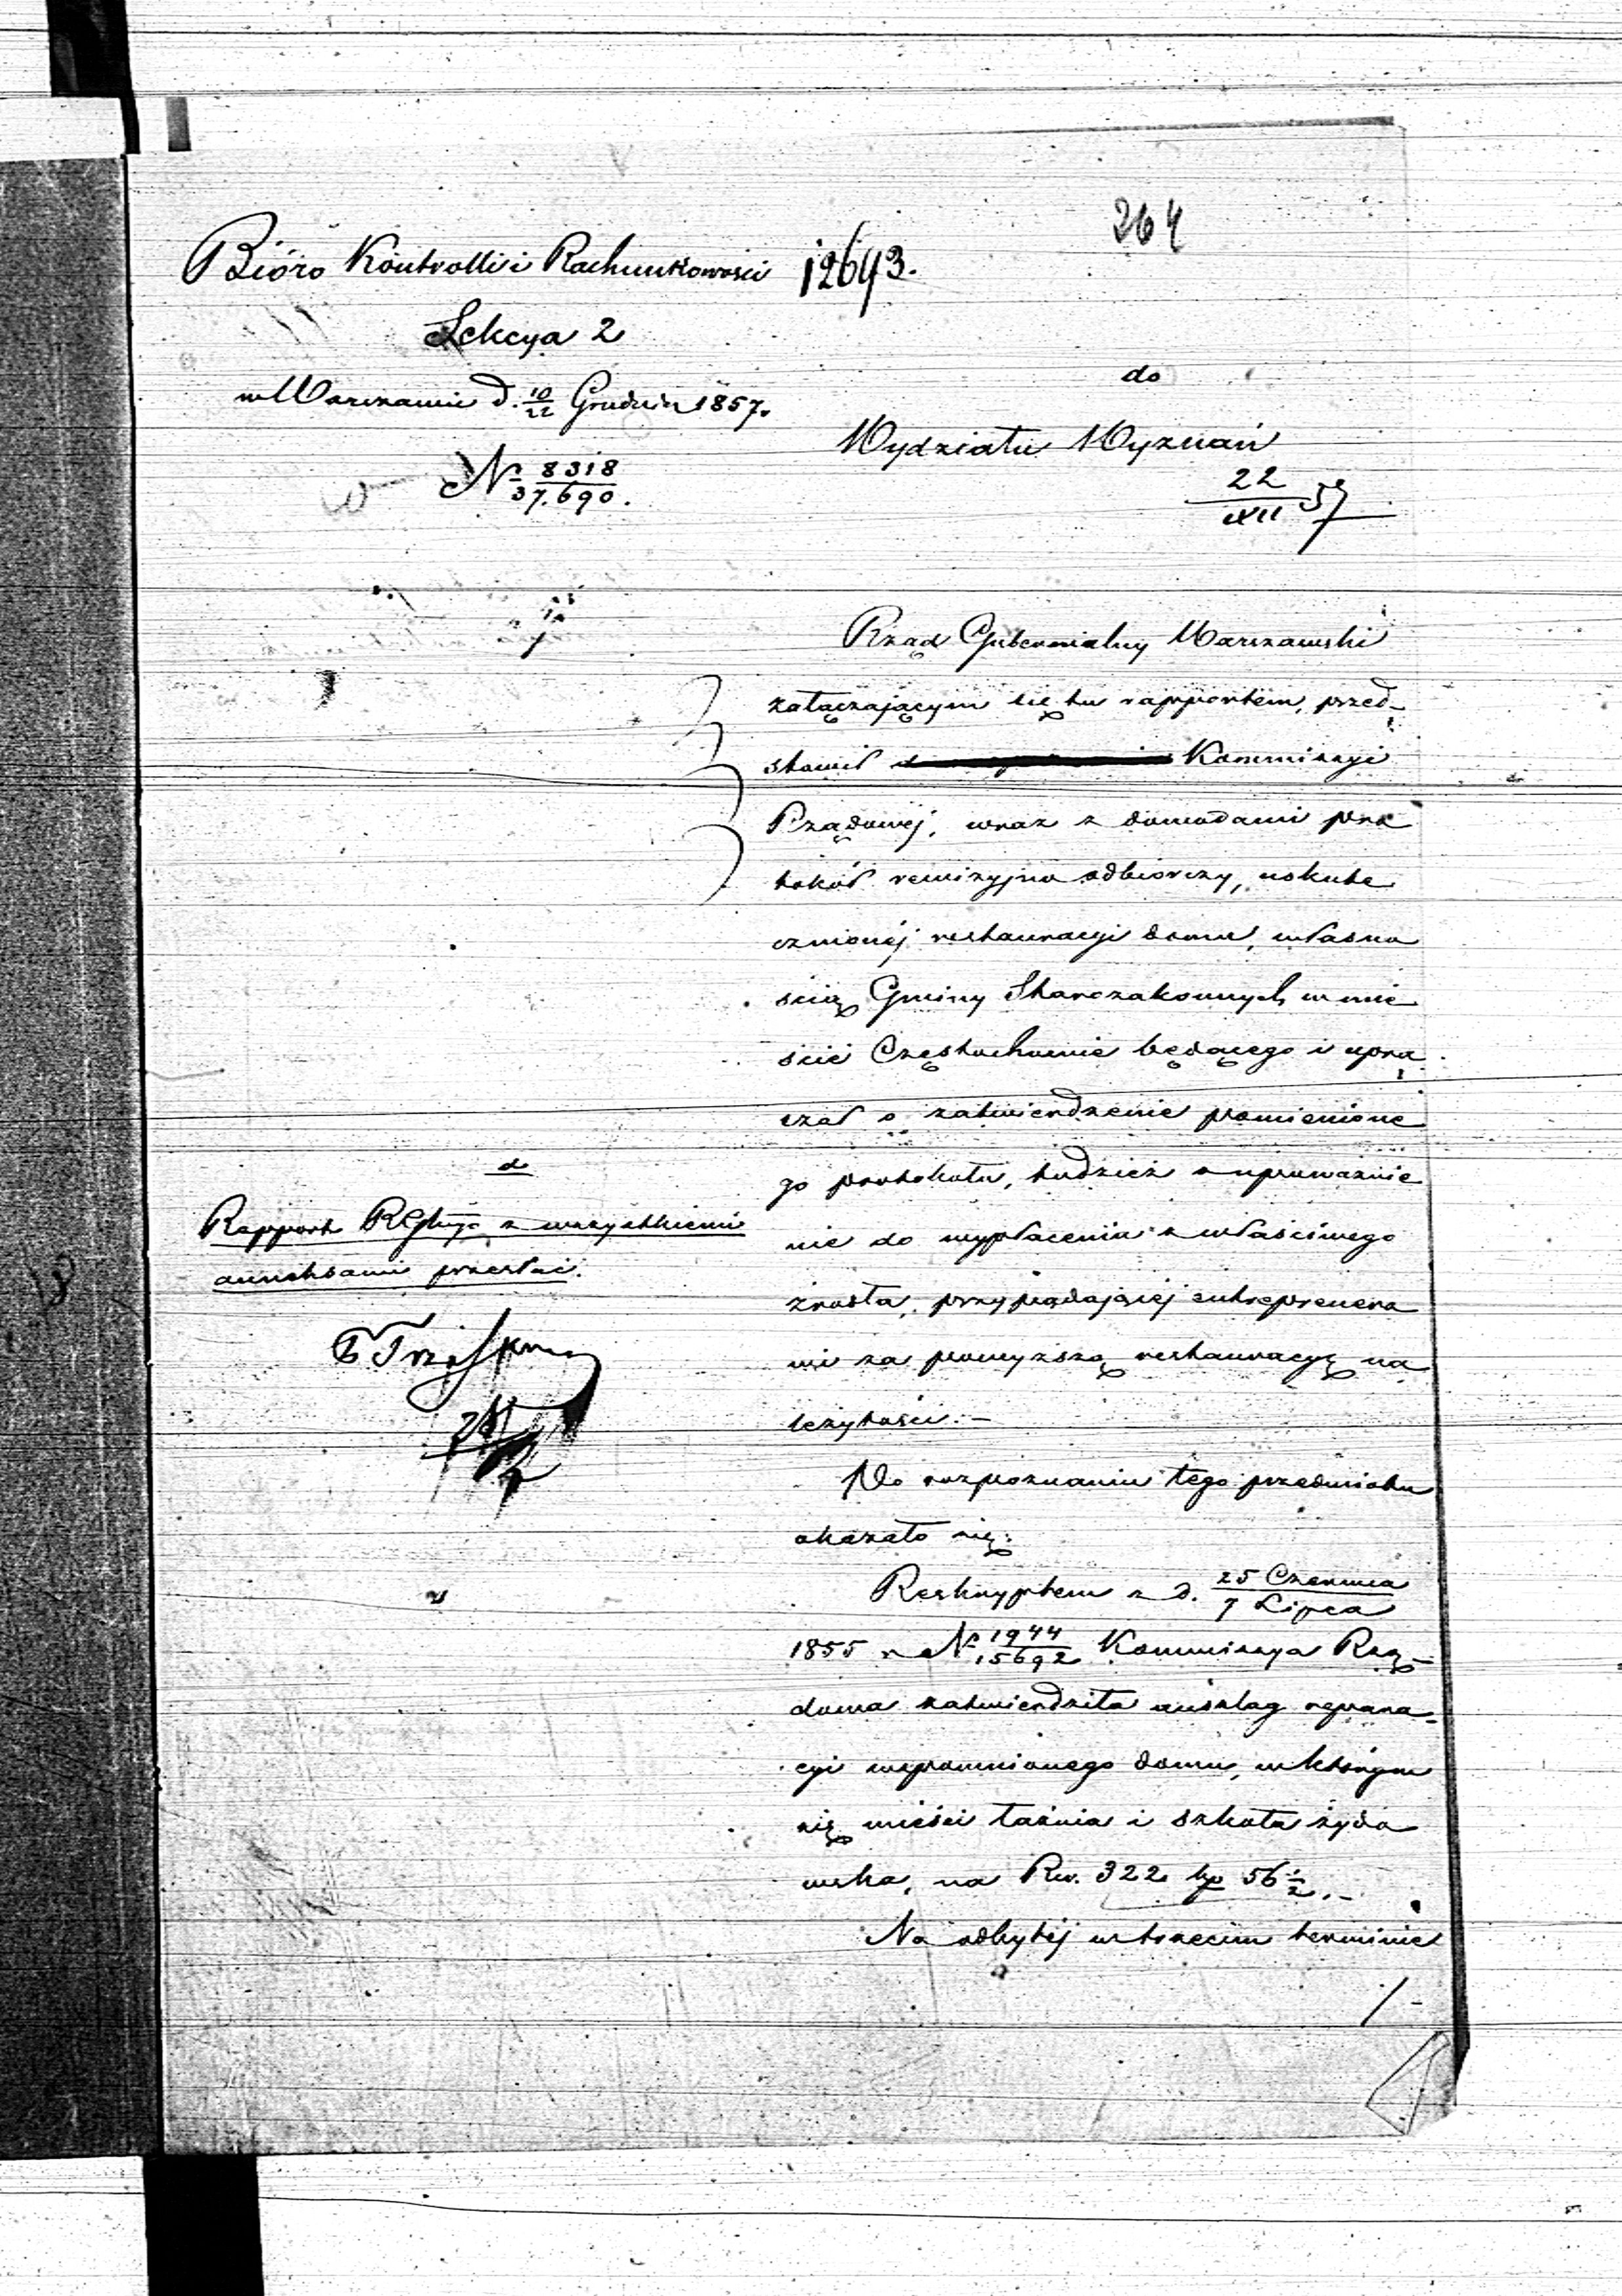 264
Bióro Kontrolli i Rachunkowości 12643.
Sekcya 2
w Warszawie d. 10/22 Grudnia 1857.
do
Wydziału Wyznań
N 8318/37.690.
22/XII 57
Rząd Gubernialny Warszawski
załączającym się tu rapportem, przed-
stawił Kommissyi
Rządowéj, wraz z dowodami pro
tokół rewizyjno odbiorczy, uskute
cznionéj restauracyi domu, własno
ścią Gminy Starozakonnych w mie
ście Częstochowie będącego i upra
szał o zatwierdzenie pomienione
go protokołu, tudzież o upoważnie
nie do wypłacenia z właściwego
źródła, przypadającéj entreprenero
wi za powyższą restauracyę na
leżytości.-
Po rozpoznaniu tego przedmiotu
okazało się:
Reskryptem z d. 25 Czerwca/7 Lipca
1855 r N 1944/15692 Kommissya Rzą-
dowa zatwierdziła anszlag repara-
cyi wspomnionego domu, w którym
się mieści łaźnia i szkoła żydo
wska, na Rsr. 322 kop 56 1/2.-
Na odbytéj w trzecim terminie
/-
Rapport RGłngo z wszystkiemi
annexsami przesłać.